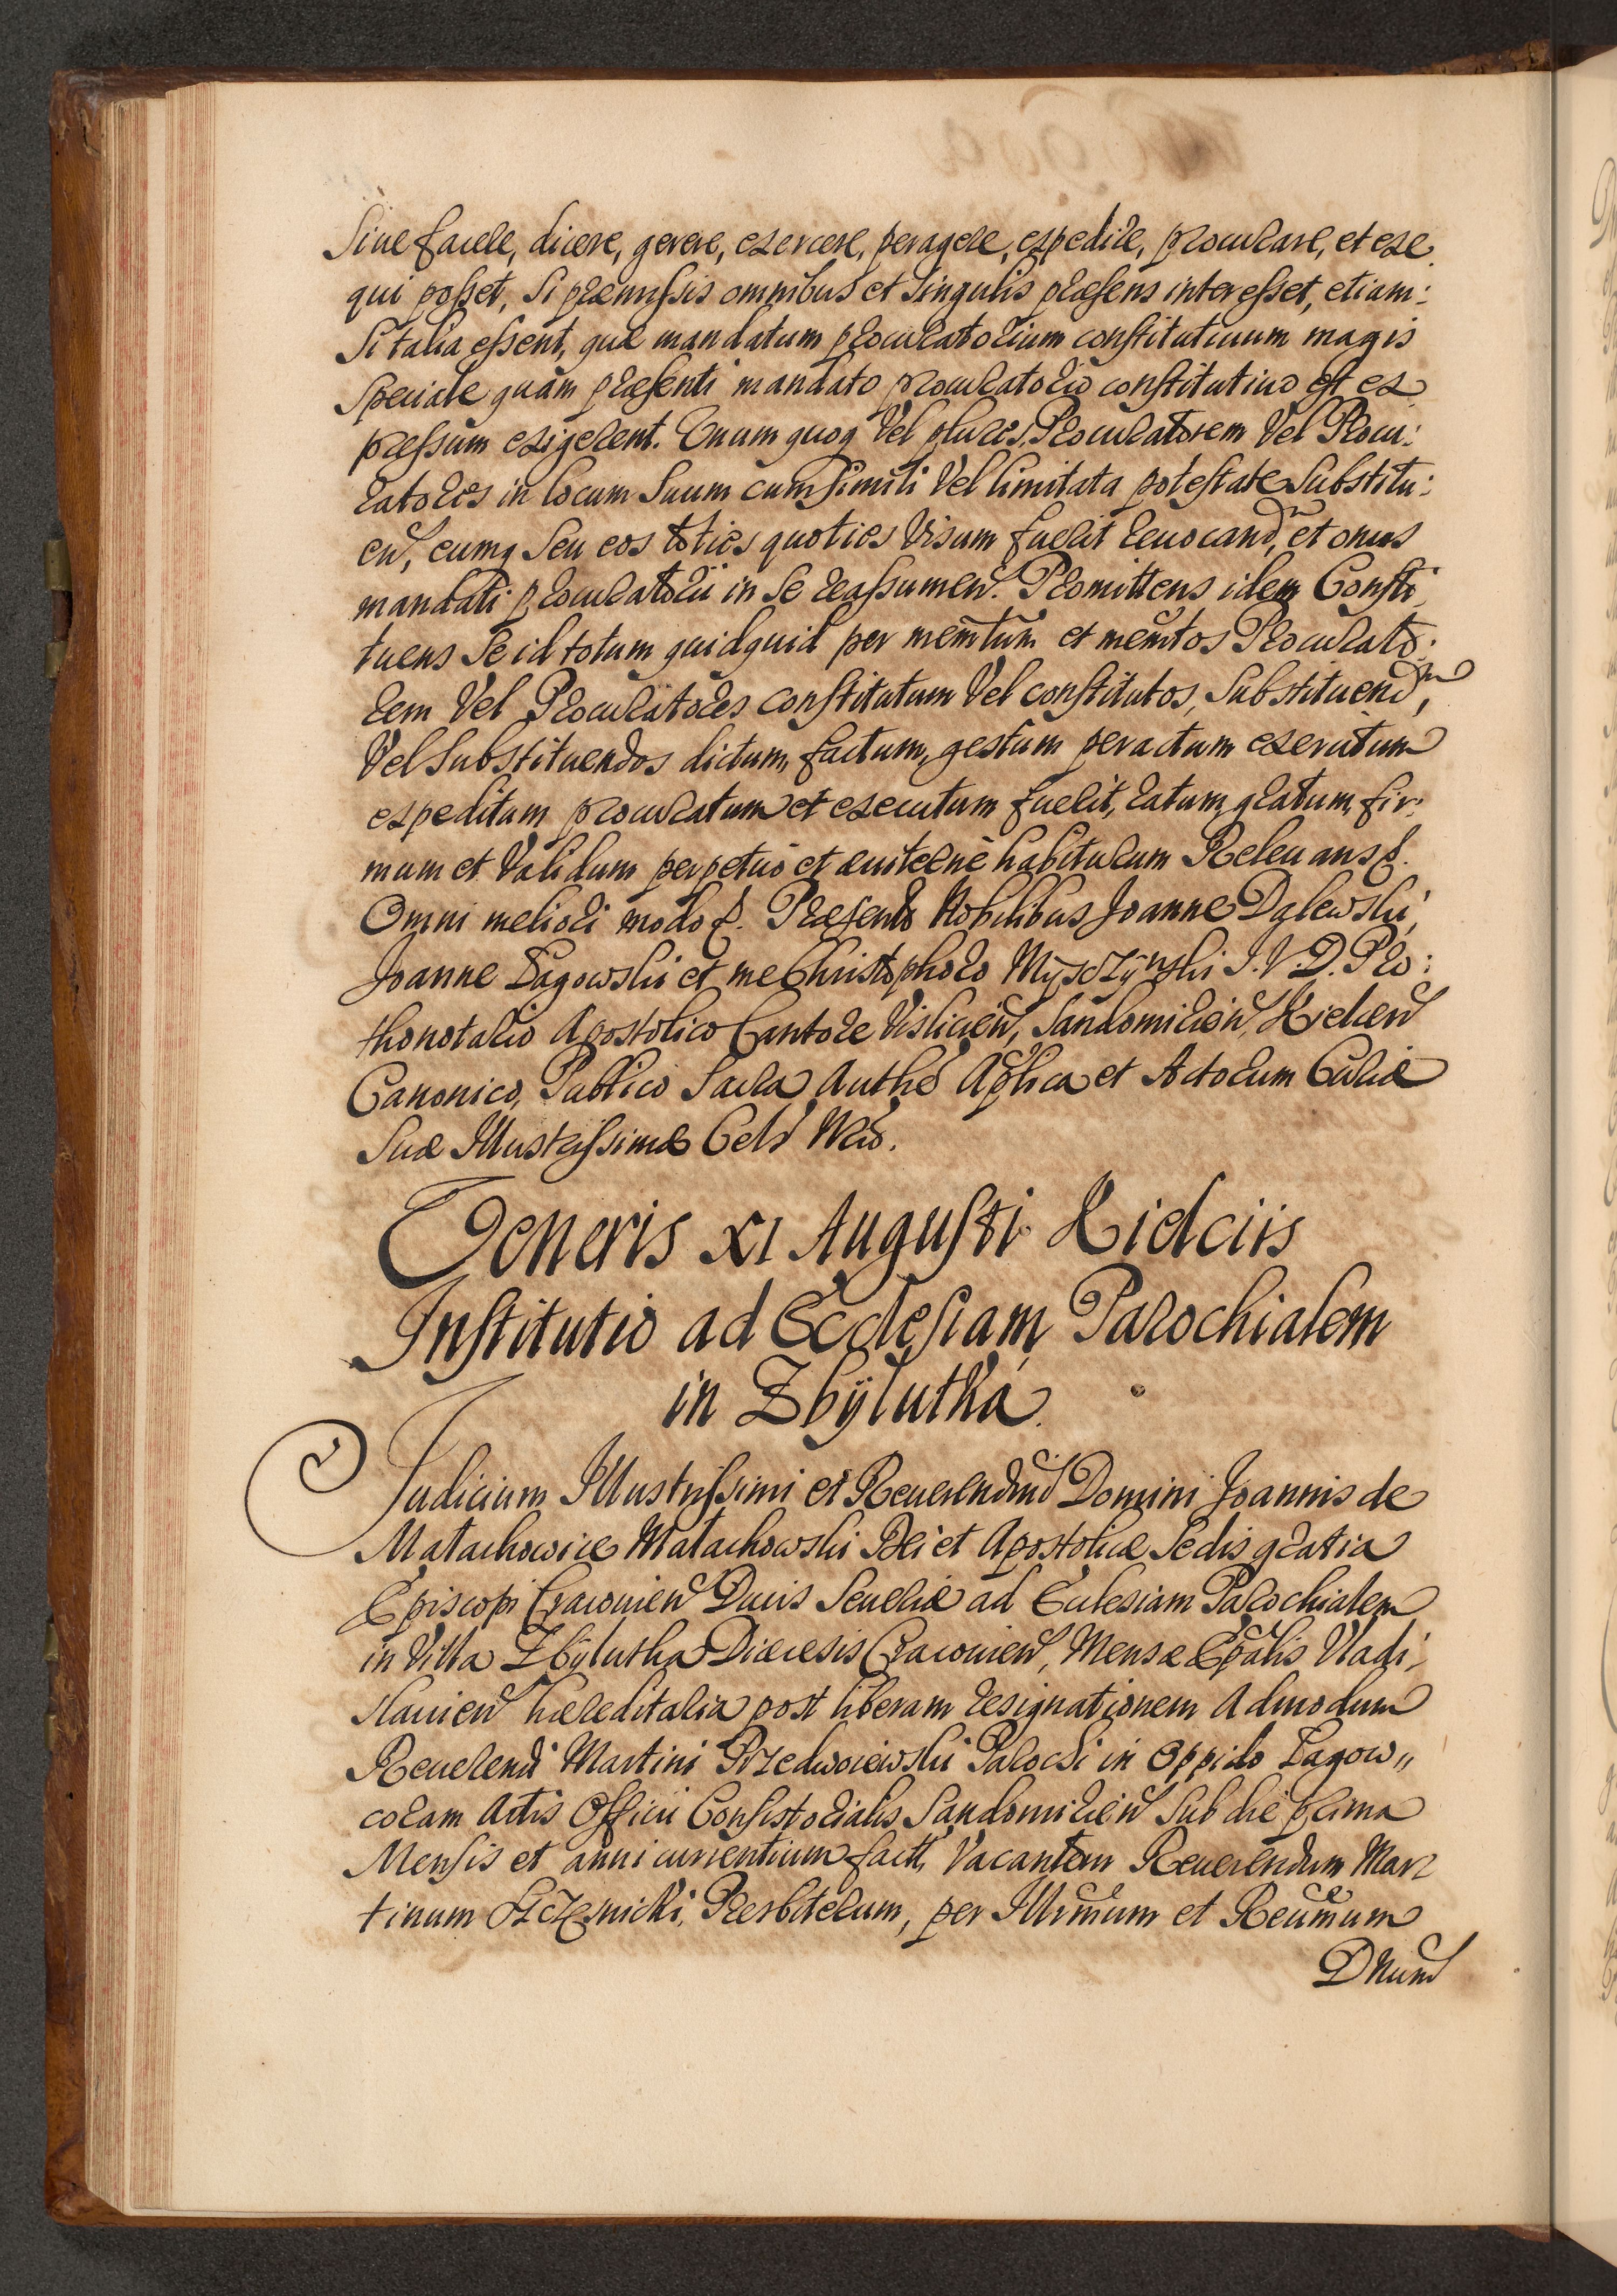 siue facere, dicere, gerere, exercere, peragere, expedire, procurare, et exe
qui posset, si præmissis omnibus et singulis præsens interesset, etiam:
si talia essent, quæ mandatum procuratorium constitutiuum magis
speciale quàm præsenti mandato procuratorio constitutiuo est ex
pressum exigerent. Vnum quoq vel plures, Procuratorem vel Procu:
ratores in locum suum cum simili vel limitata potestate substitu:
en, eumq seu eos toties quoties visum fuerit reuocand, et onus
mandati procuratorii in se reassumen. Promittens idem Consti
tuens se id totum quidquid per memtum et memtos Procurato:
rem vel Procuratores constitutum vel constitutos, substituendm,
vel substituendos dictum, factum, gestum peractum exercitum
expeditum procuratum et executum fuerit, ratum, gratum, fir:
mum et validum perpetuò et æuiternè habiturum Releuans &.
Omni meliori modo &. Præsentib Nobilibus Joanne Dąlewski,
Joanne Łagowski et me Christophoro Myszczyński I. V. D. Pro:
thonotario Apostolico Cantore Vislicien, Sandomirien, Kielcen
Canonico, Publico Sacra Authe Aplica et Actorum Curiæ
Suæ Illustrissimæ Cels Nrio.
Veneris XI Augusti Kielciis
Institutio ad Ecclesiam Parochialem
in Zbÿlutká.
Judicium Illustrissimi et Reuerendmi Domini Joannis de
Małachowice Małachowski Dei et Apostolicæ Sedis gratia
Episcopi Cracouien Ducis Seueriæ ad Ecclesiam Parochialem
in Villa Zbÿlutka Diæcesis Cracouien, Mensæ Epalis Vladi:
slauien hæreditaria post liberam resignationem Admodum
Reuerendi Martini Przedwoiewski Parochi in Oppido Łagow,,
coram Actis Officii Consistorialis Sandomirien sub die prima
Mensis et anni currentium fact, Vacantem Reuerendum Mar
tinum Presbiterum, per Illrmum et Reumum
Dnum